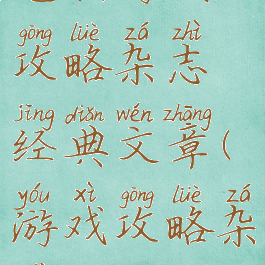 gōng lüè zá zhì
攻略杂志
jīng diǎn wén zhāng
经典文章(
yóu xì gōng lüè zá
游戏攻略杂